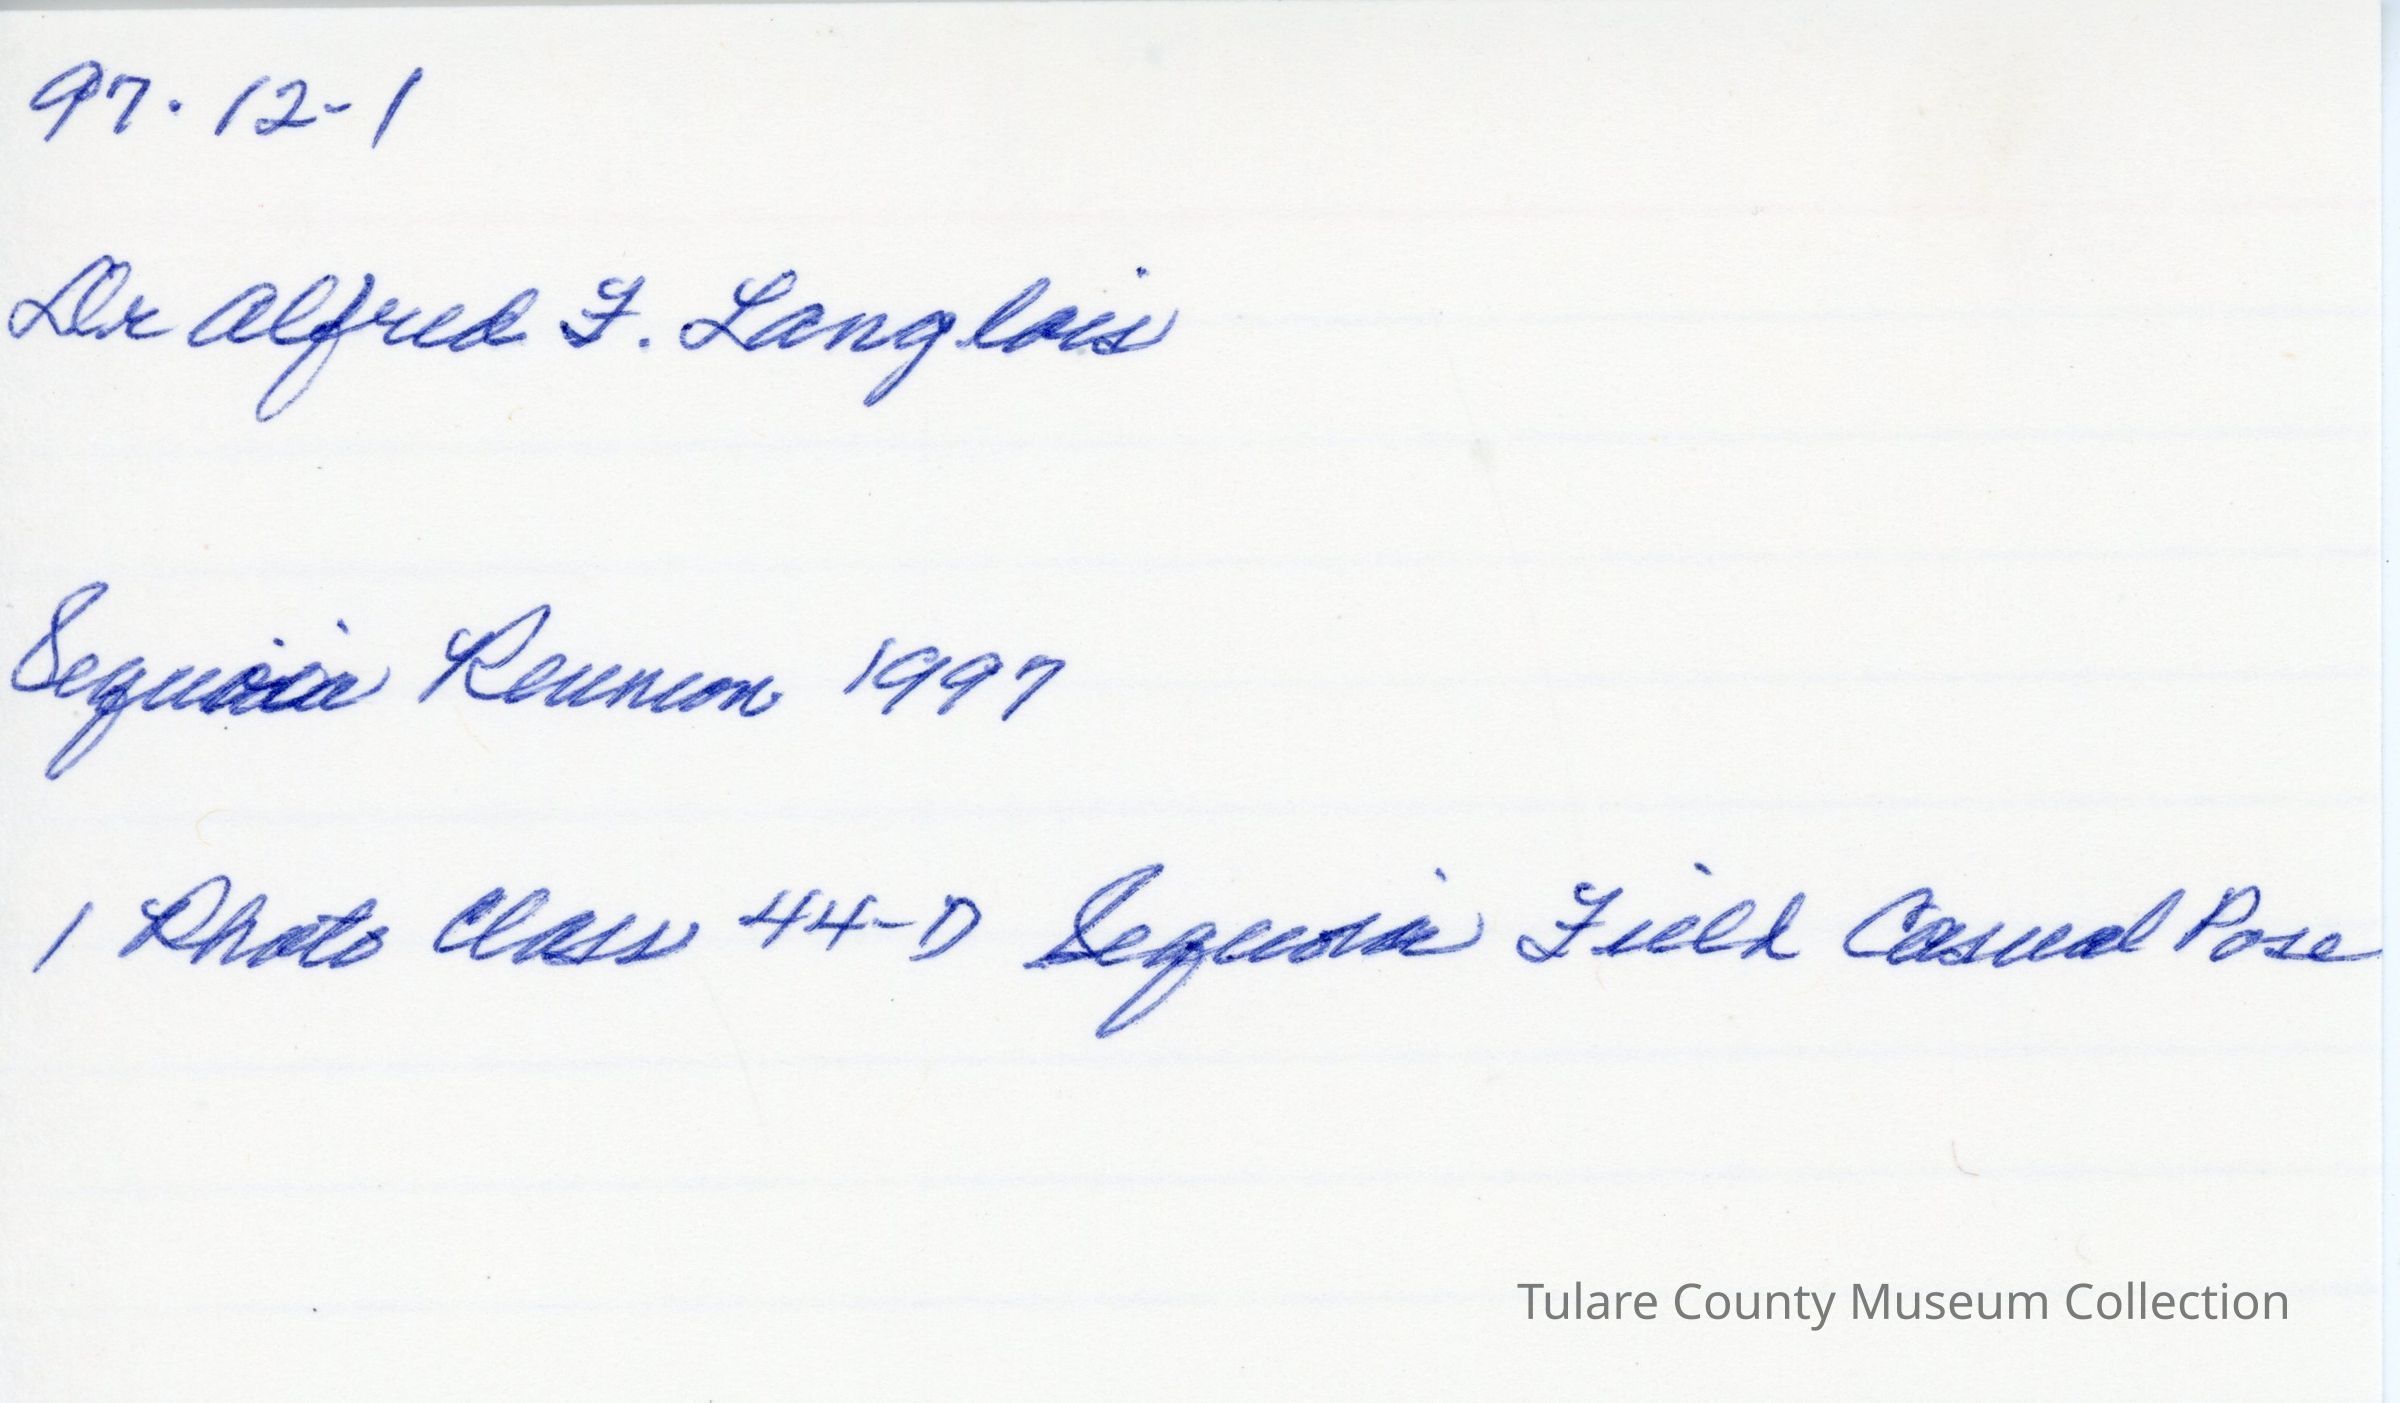 97.12-1
Dr Alfred F. Langlois
Sequoia Reunion 1997
1 Photo Class 44-D Sequoia Field Casual Pose
Tulare County Museum Collection